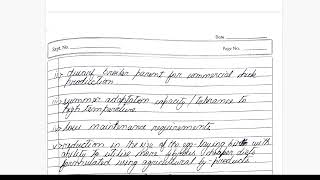 Date
Sept. No.
Page No.
ii) dwarf broiler parent for commercial chick
production
iii) summer adaptation capacity / tolerance to
high temperature
iv) low maintenance requirements
v) reduction in the size of the egg-laying bird with
ability to utilize more fibrous cheaper diets
formulated using agricultural by-products